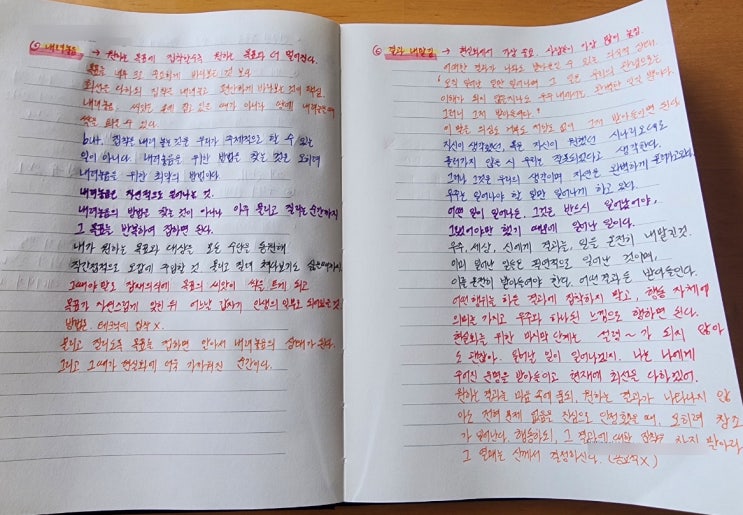 ⑤ 내려놓음 → 원하는 목표에 집착할수록 원하는 목표와 더 멀어진다.
목표를 너무 중요하게 바라보는 것 보다
최선은 다하되 집착은 내려놓고 편안하게 바라보는 것이 핵심.
내려놓음, 씨앗은 손에 쥐고 있은 때가 아니라 땅에 내려놓은때
싹을 틔울 수 있다.
but. 집착을 내려 놓는 것은 우리가 주체적으로 할 수 있는
일이 아니다. 내려놓음을 위한 방법을 찾는 것은 오히려
내려놓음을 위한 최악의 방법이다.
내려놓음은 자연적으로 일어나는 것.
내려놓음의 방법은 찾는 것이 아니라 아주 물리고 질리는 순간까지
그 목표를 반복하여 집하면 된다.
내가 원하는 목표와 대상을 모든 수단을 동원해
직간접적으로 오감에 주입할 것. 물리고 질려 쳐다보기도 싫을때까지.
그때야 말로 잠재의식에 목표의 씨앗이 싹을 트게 되고
목표가 자연스럽게 잊힌 뒤 어느날 갑자기 인생의 일부로
방법, 테크닉에 집착 X.
물리고 질리도록 목표를 접하면 알아서 내려놓음의 상태가 된다.
그리고 그때가 현실화에 아주 가까워진 순간이다.
⑥ 결과 내맡김 → 현실화에서 가장 중요. 사실들이 가장 많이 놓침.
어떠한 결과가 나와도 받아들일 수 있는 의식의 상태.
"오직 일어날 일만 일어나며 그 일은 우리의 관점으로는
이해가 되지 않을지라도 우주 내에서는 완벽한 일일 뿐이다.
그러니 그저 받아들여라."
이 말을 의심도 거부도 저항도 없이 그저 받아들이면 된다.
자신이 생각했던, 혹은 자신이 원했던 시나리오대로
흘러가지 않을 시 우리는 잘못되었다고 생각한다.
그러나 그것은 우리의 생각이며 자연은 완벽하게 흘러가고있다.
우주는 일어나야 할 일만 일어나게 하고 있다.
어떤 일이 일어나든, 그것은 반드시 일어났어야,
그랬어야만 했기 때문에 일어난 일이다.
우주, 세상, 신에게 결과를, 일을 온전히 내맡길것.
이미 일어난 일들은 필연적으로 일어난 것이며,
이를 온전히 받아들여야 한다. 어떤 결과든 받아들인다.
어떤 행위를 하든 결과에 집착하지 말고, 행동 자체에
의미를 가지고 우주와 하나된 느낌으로 행하면 된다.
현실화를 위한 마지막 단계는 설령 ~가 되지 않아
도 괜찮아. 일어날 일이 일어나겠지. 나는 나에게
주어진 운명을 받아들이고 현재에 최선을 다하겠어.
원하는 결과를 마음 속에 품되, 원하는 결과가 나타나지 않
아도 전혀 문제 없음을 진심으로 인정했을 때, 오히려 창조
가 일어난다. 행동하되, 그 결과에 대한 집착 가지지 말아라
그 열매는 신께서 결정하신다. (중요성X)